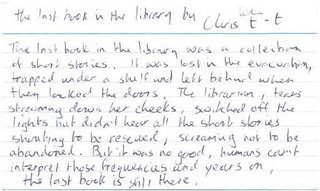 the last book in the library by Chris t-t
The last book in the library was a collection
of short stories. It was lost in the evacuation,
trapped under a shelf and left behind when
they locked the doors. The librarian, tears
streaming down her cheeks, switched off the
lights but didn't hear all the short stories
shouting to be rescued, screaming not to be
abandoned. But it was no good, humans can't
interpret those frequencies and years on,
the last book is still there.